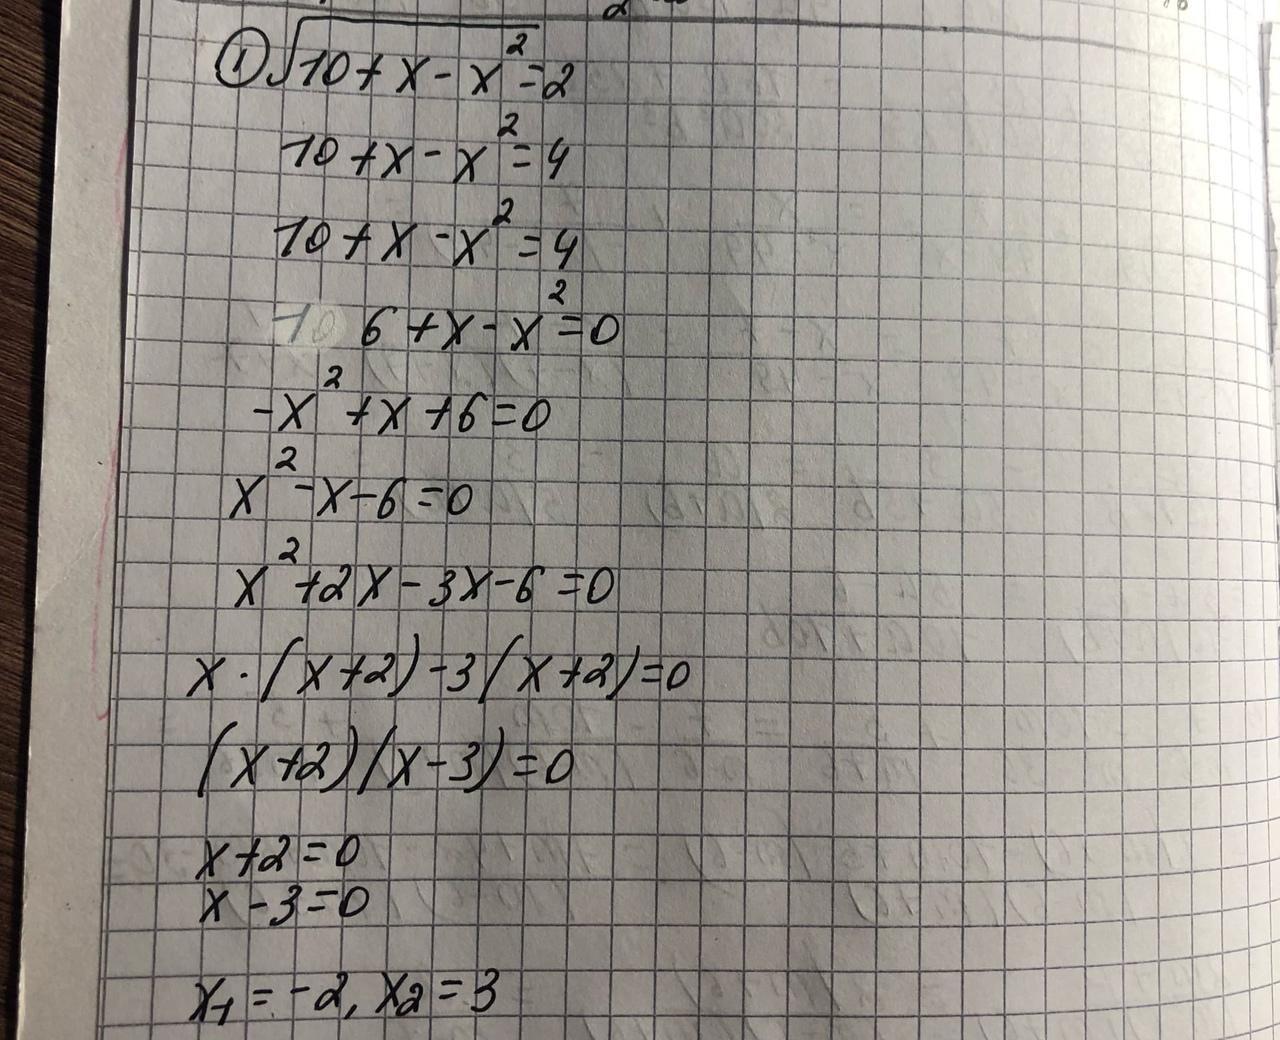 ① √10+x-x²=2
10+x-x²=4
10+x-x²=4
10 6+x-x²=0
-x²+x+6=0
x²-x-6=0
x²+2x-3x-6=0
x·(x+2)-3(x+2)=0
(x+2)(x-3)=0
x+2=0
x-3=0
x₁=-2, x₂=3